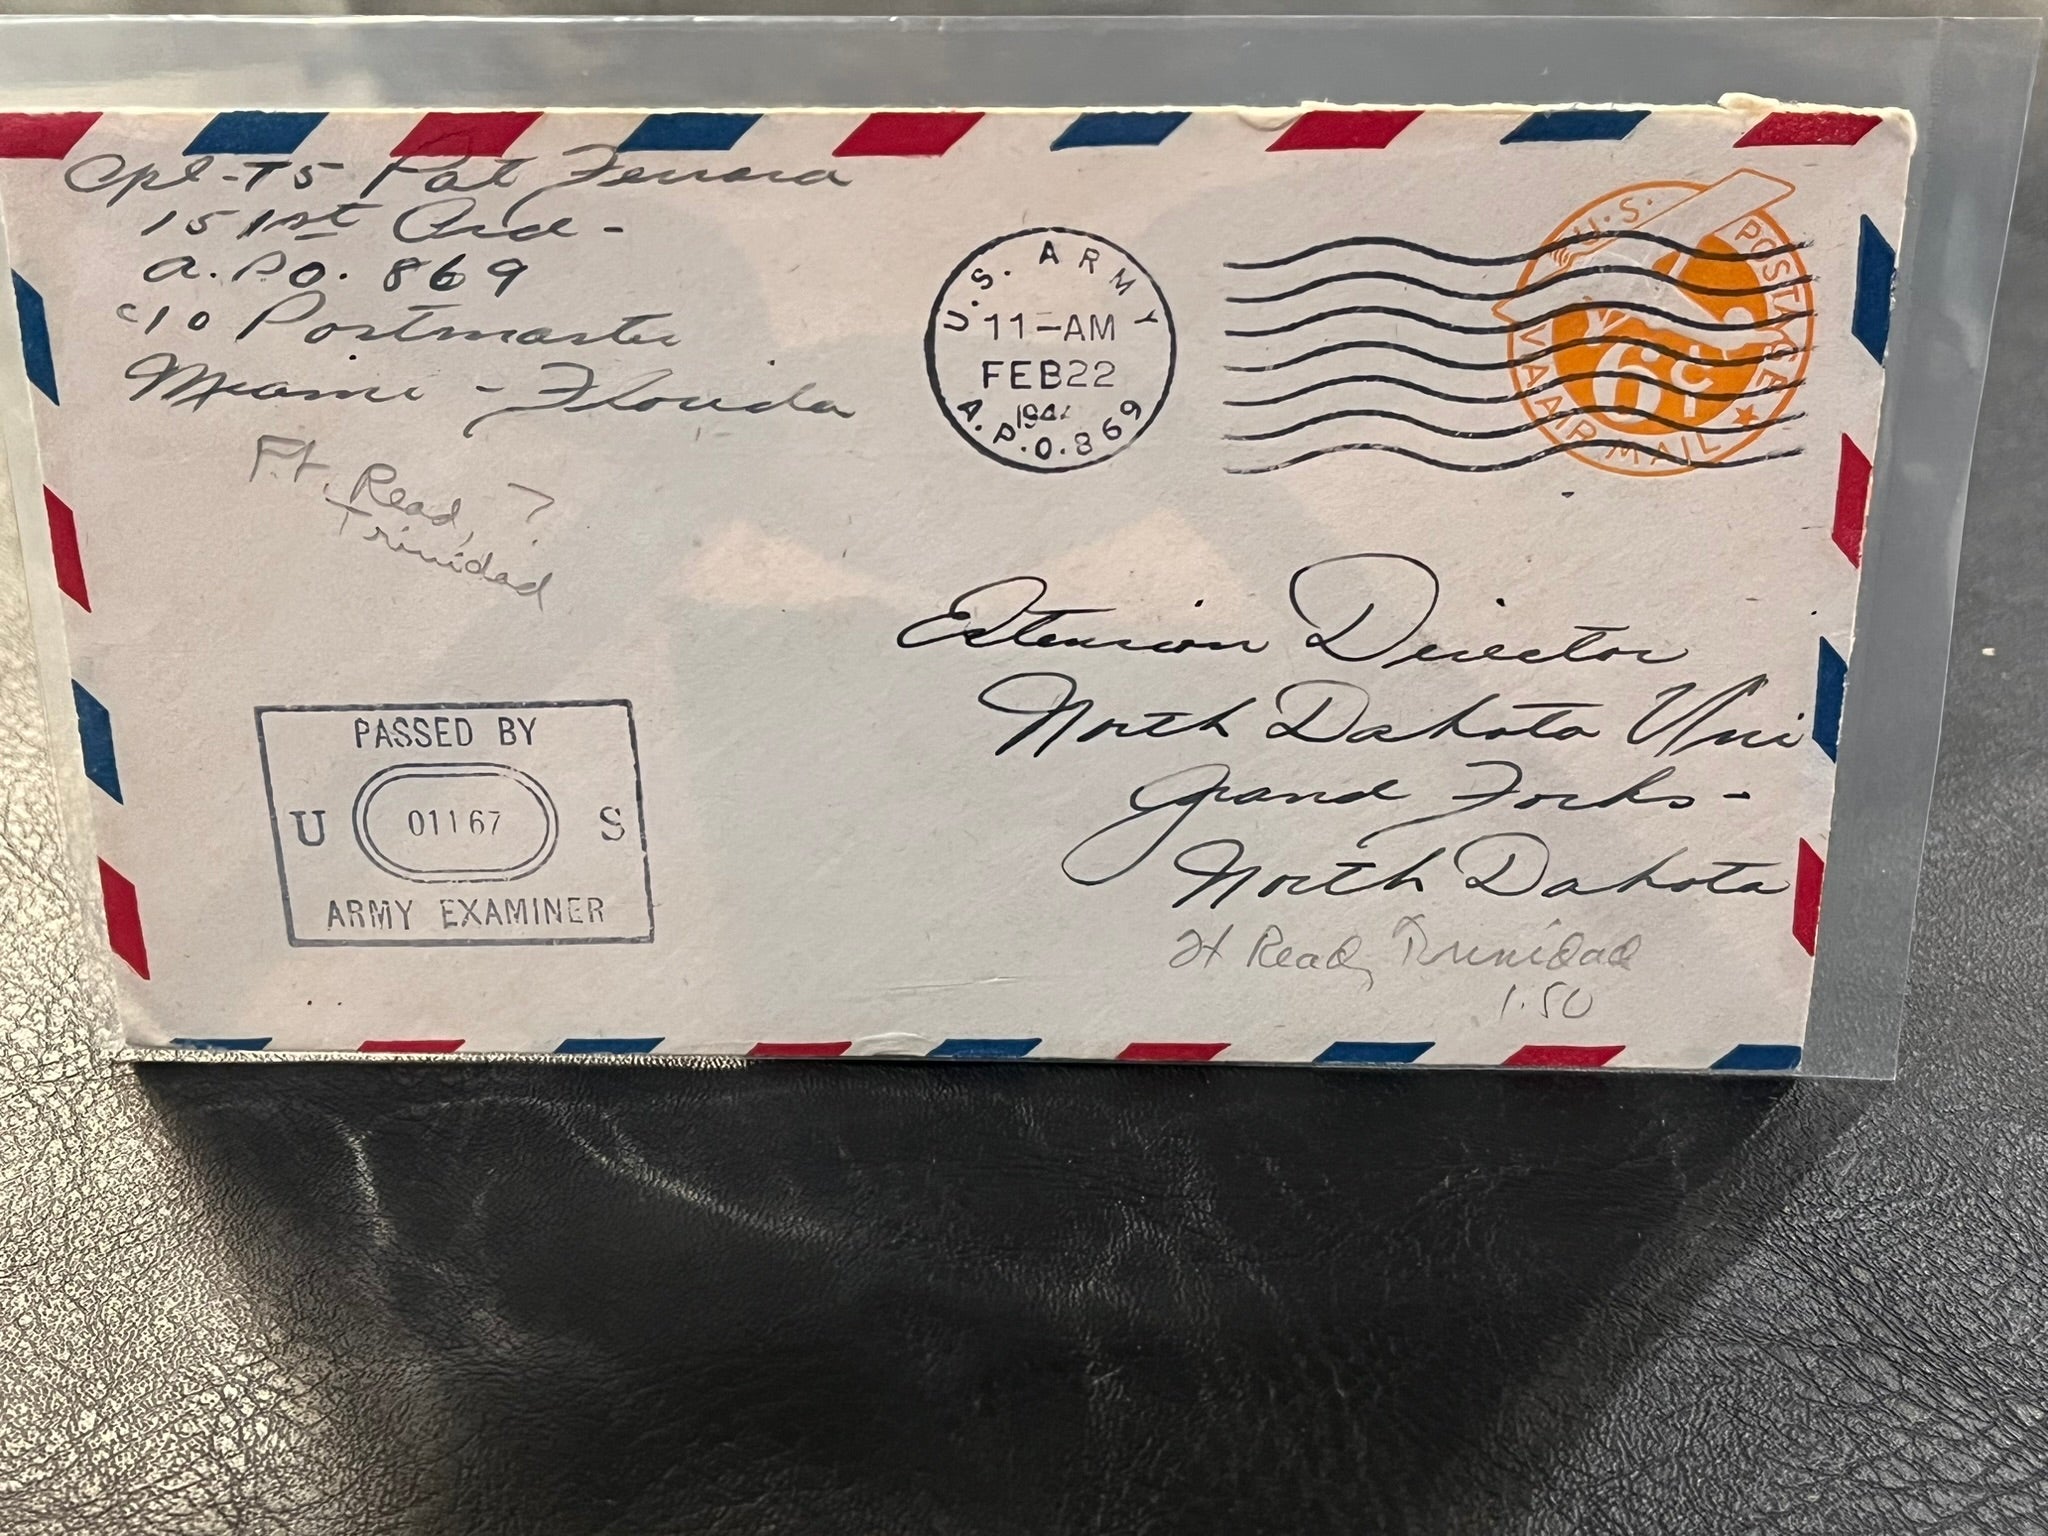 Cpl-T5 Pat Ferrara
151st Ord-
A.P.O. 869
c/o Postmaster
Miami - Florida
Ft. Read, ?
Trinidad
U.S. ARMY
11-AM
FEB 22
A.P.O. 869
U.S. POSTAGE
6¢
VIA AIR MAIL
Extension Director
North Dakota Uni
Grand Forks-
North Dakota
Ft Read, Trinidad
1.50
PASSED BY
U 01167 S
ARMY EXAMINER